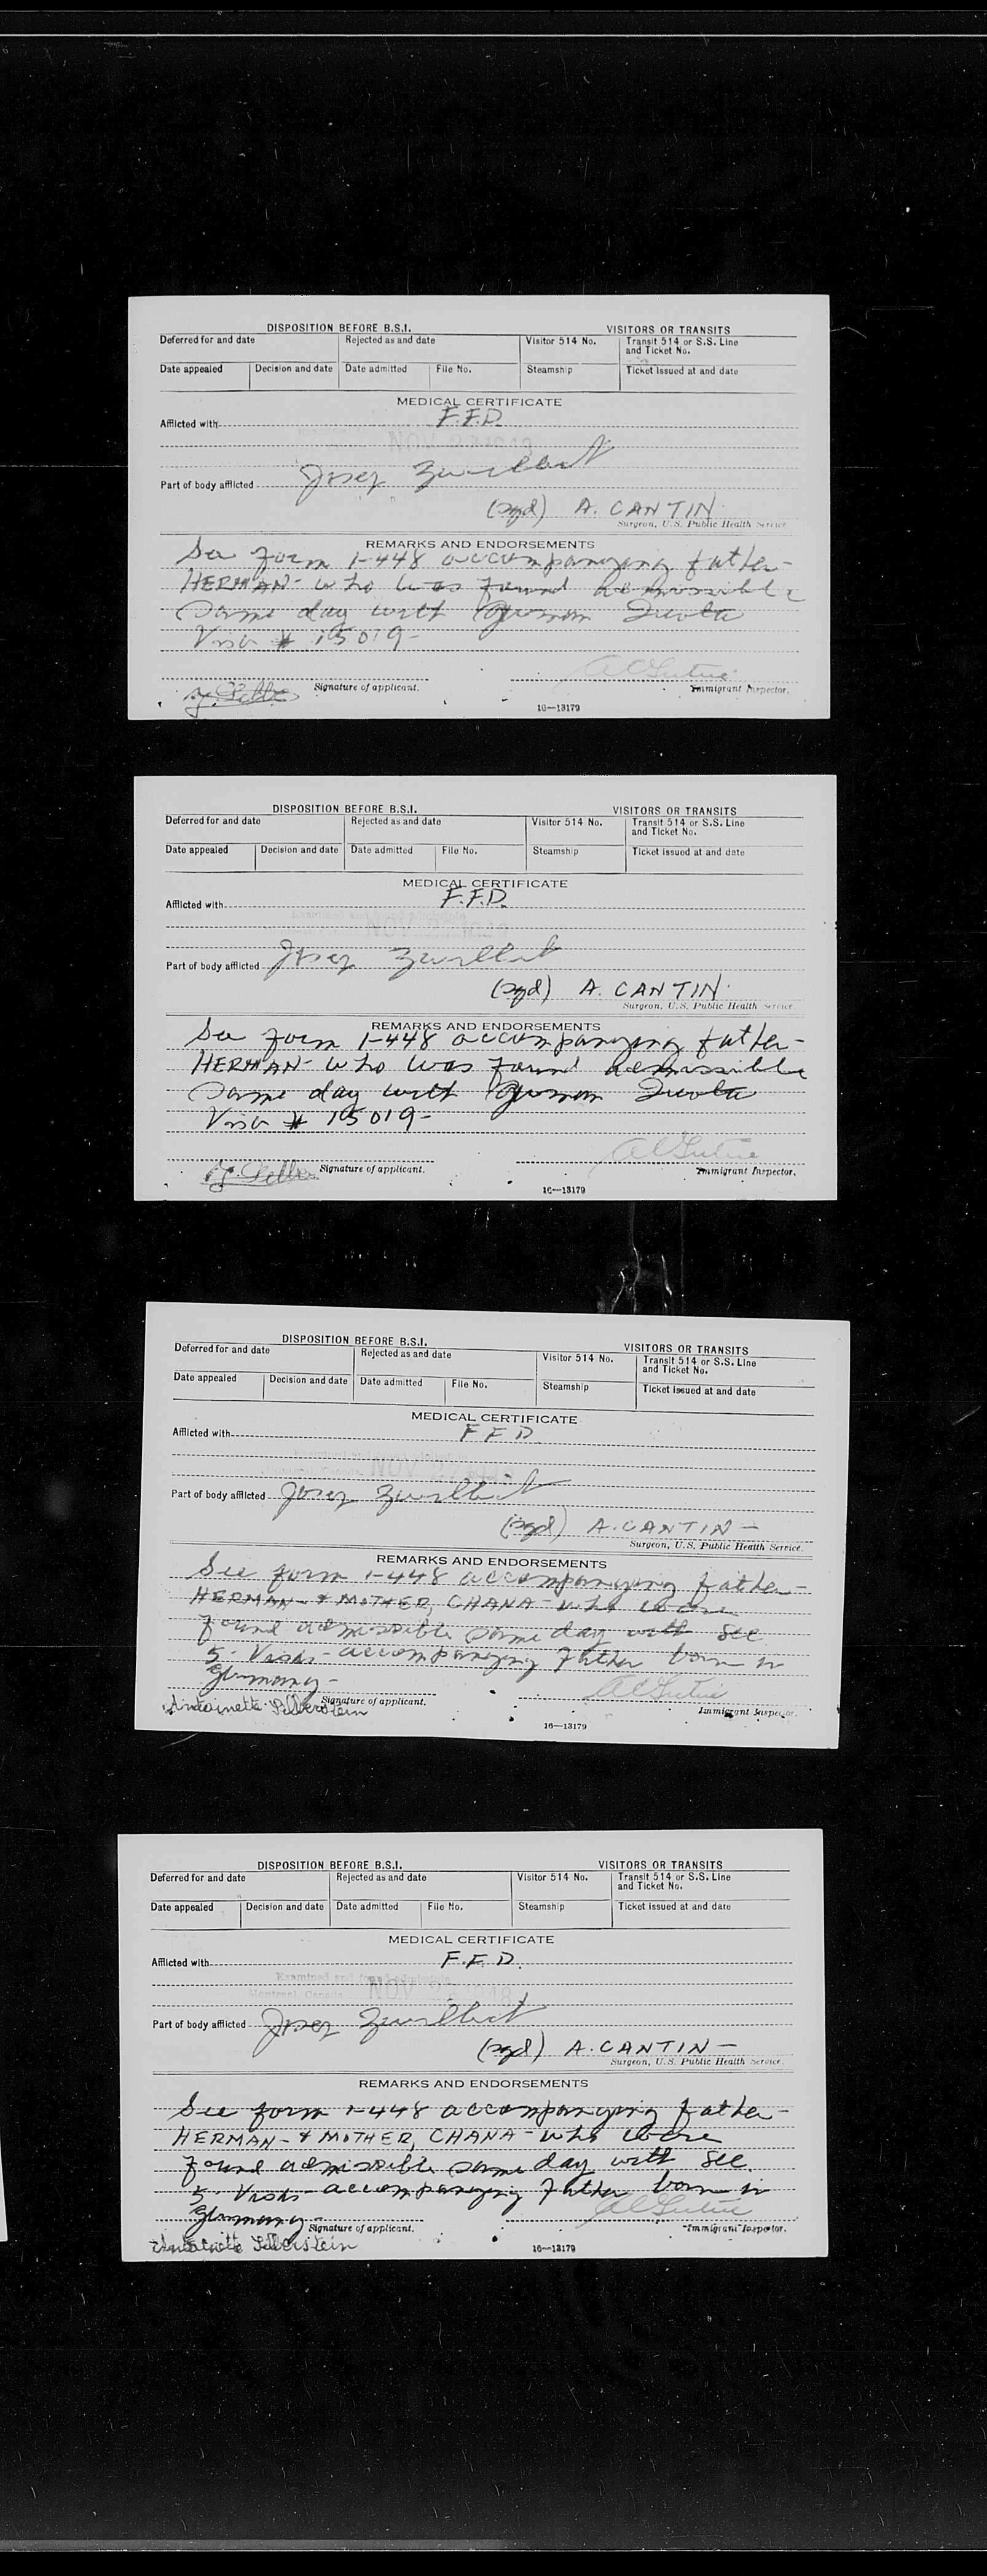 DISPOSITION BEFORE B.S.I. VISITORS OR TRANSITS
Deferred for and date Rejected as and date Visitor 514 No. Transit 514 or S.S. Line and Ticket No.
Date appealed Decision and date Date admitted File No. Steamship Ticket issued at and date
MEDICAL CERTIFICATE
Afflicted with F.F.D.
NOV
Part of body afflicted Josef
(sgd) A. CANTIN
Surgeon, U.S. Public Health Service.
REMARKS AND ENDORSEMENTS
See form 1-448 accompanying father-
HERMAN- who was found admissible
same day with German Quota
Visa # 15019-
Signature of applicant. Immigrant Inspector.
16—13179
DISPOSITION BEFORE B.S.I. VISITORS OR TRANSITS
Deferred for and date Rejected as and date Visitor 514 No. Transit 514 or S.S. Line and Ticket No.
Date appealed Decision and date Date admitted File No. Steamship Ticket issued at and date
MEDICAL CERTIFICATE
Afflicted with F.F.D.
NOV
Part of body afflicted Josef
(sgd) A. CANTIN
Surgeon, U.S. Public Health Service.
REMARKS AND ENDORSEMENTS
See form 1-448 accompanying father-
HERMAN- who was found admissible
same day with German Quota
Visa # 15019-
Signature of applicant. Immigrant Inspector.
16—13179
DISPOSITION BEFORE B.S.I. VISITORS OR TRANSITS
Deferred for and date Rejected as and date Visitor 514 No. Transit 514 or S.S. Line and Ticket No.
Date appealed Decision and date Date admitted File No. Steamship Ticket issued at and date
MEDICAL CERTIFICATE
Afflicted with F F D
NOV
Part of body afflicted Josef
(sgd) A. CANTIN —
Surgeon, U.S. Public Health Service.
REMARKS AND ENDORSEMENTS
See form 1-448 accompanying father-
HERMAN- & MOTHER, CHANA- who were
found admissible same day with Sec
5- Visas- accompanying father born in
Germany-
Antoinette Silberstein Signature of applicant. Immigrant Inspector.
16—13179
DISPOSITION BEFORE B.S.I. VISITORS OR TRANSITS
Deferred for and date Rejected as and date Visitor 514 No. Transit 514 or S.S. Line and Ticket No.
Date appealed Decision and date Date admitted File No. Steamship Ticket issued at and date
MEDICAL CERTIFICATE
Afflicted with F.F.D.
Examined and found admissible
Montreal, Canada NOV
Part of body afflicted Josef
(sgd) A. CANTIN —
Surgeon, U.S. Public Health Service.
REMARKS AND ENDORSEMENTS
See form 1-448 accompanying father-
HERMAN- & MOTHER, CHANA- who were
found admissible same day with Sec.
5- Visas- accompanying father born in
Germany-
Antoinette Silberstein Signature of applicant. Immigrant Inspector.
16—13179